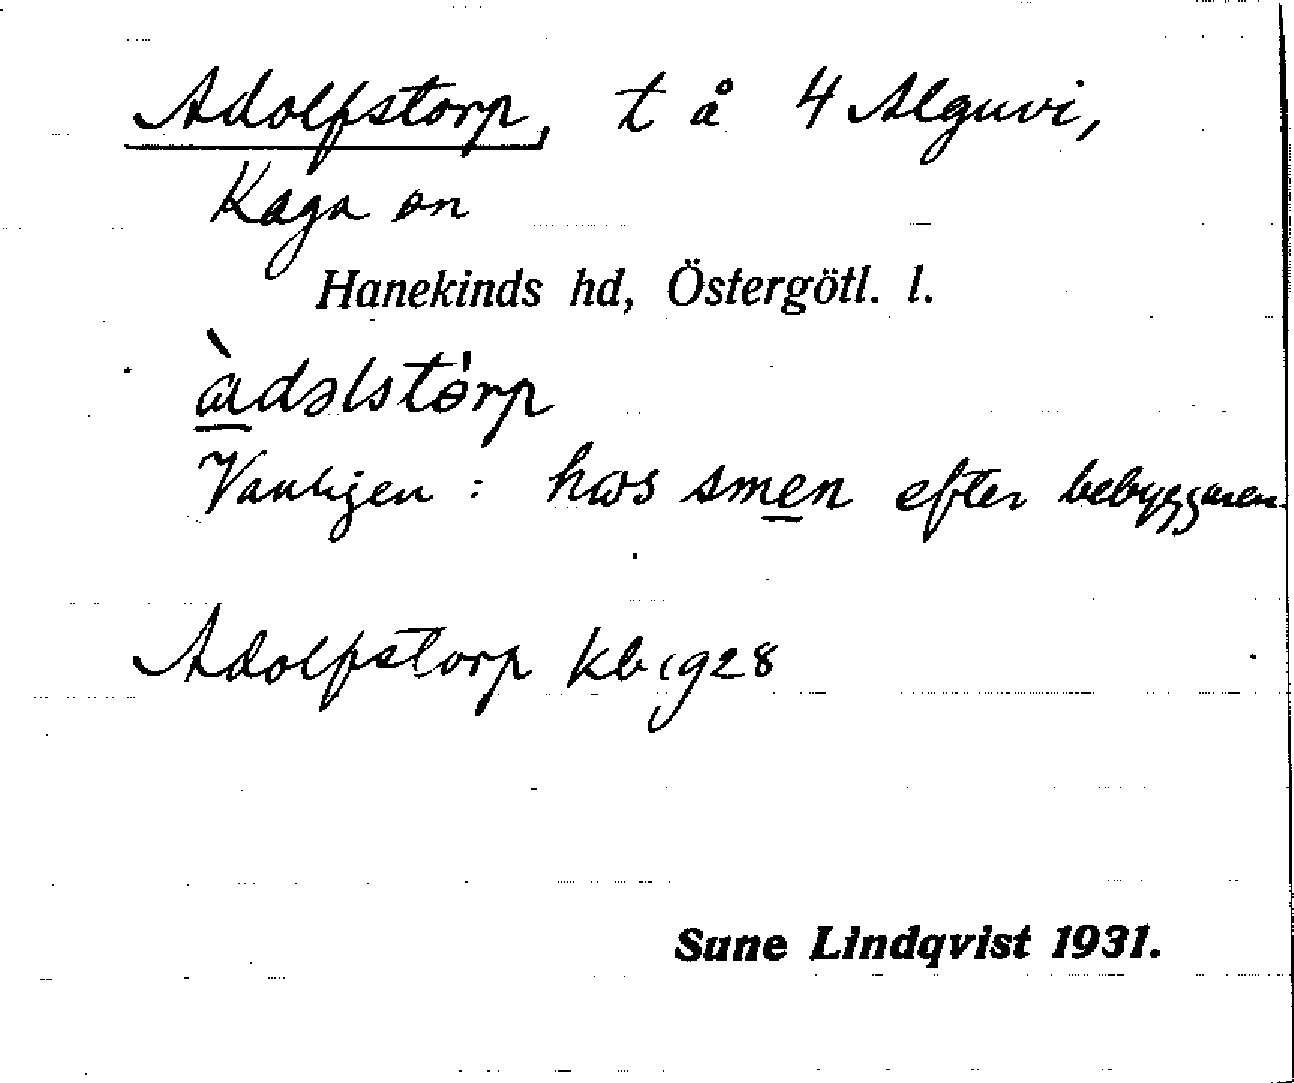 Adolfstorp, t å 4 Alguvi,
Kaga sn
Hanekinds hd, Östergötl. l.
àdəlstórp
Vanligen: hos smen efter bebyggaren.
Adolfstorp kb 1928
Sune Lindqvist 1931.